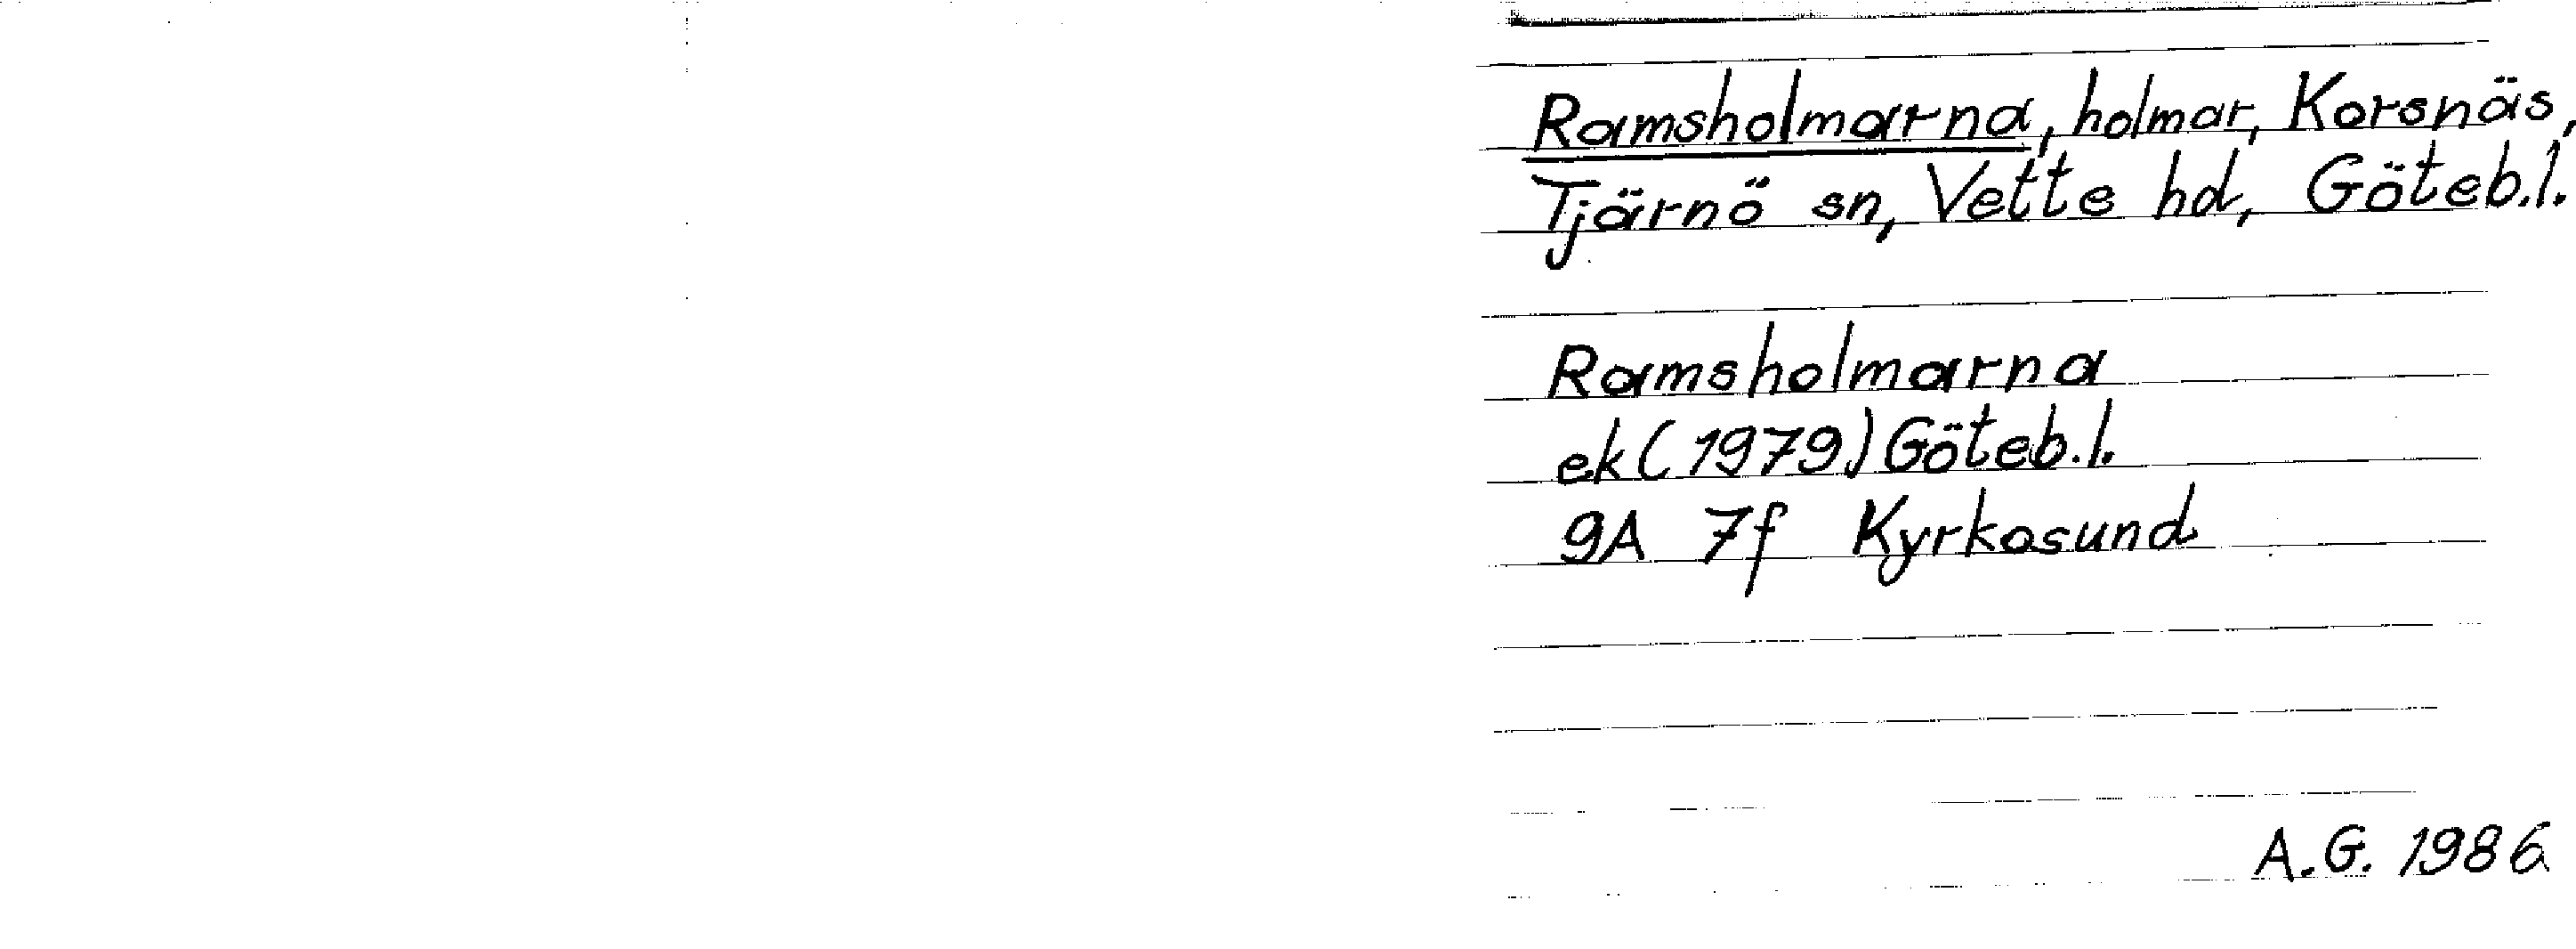 Ramsholmarna, holmar, Korsnäs,
Tjärnö sn, Vette hd, Göteb.l.
Ramsholmarna
ek (1979) Göteb.l.
9A 7f Kyrkosund
A.G. 1986